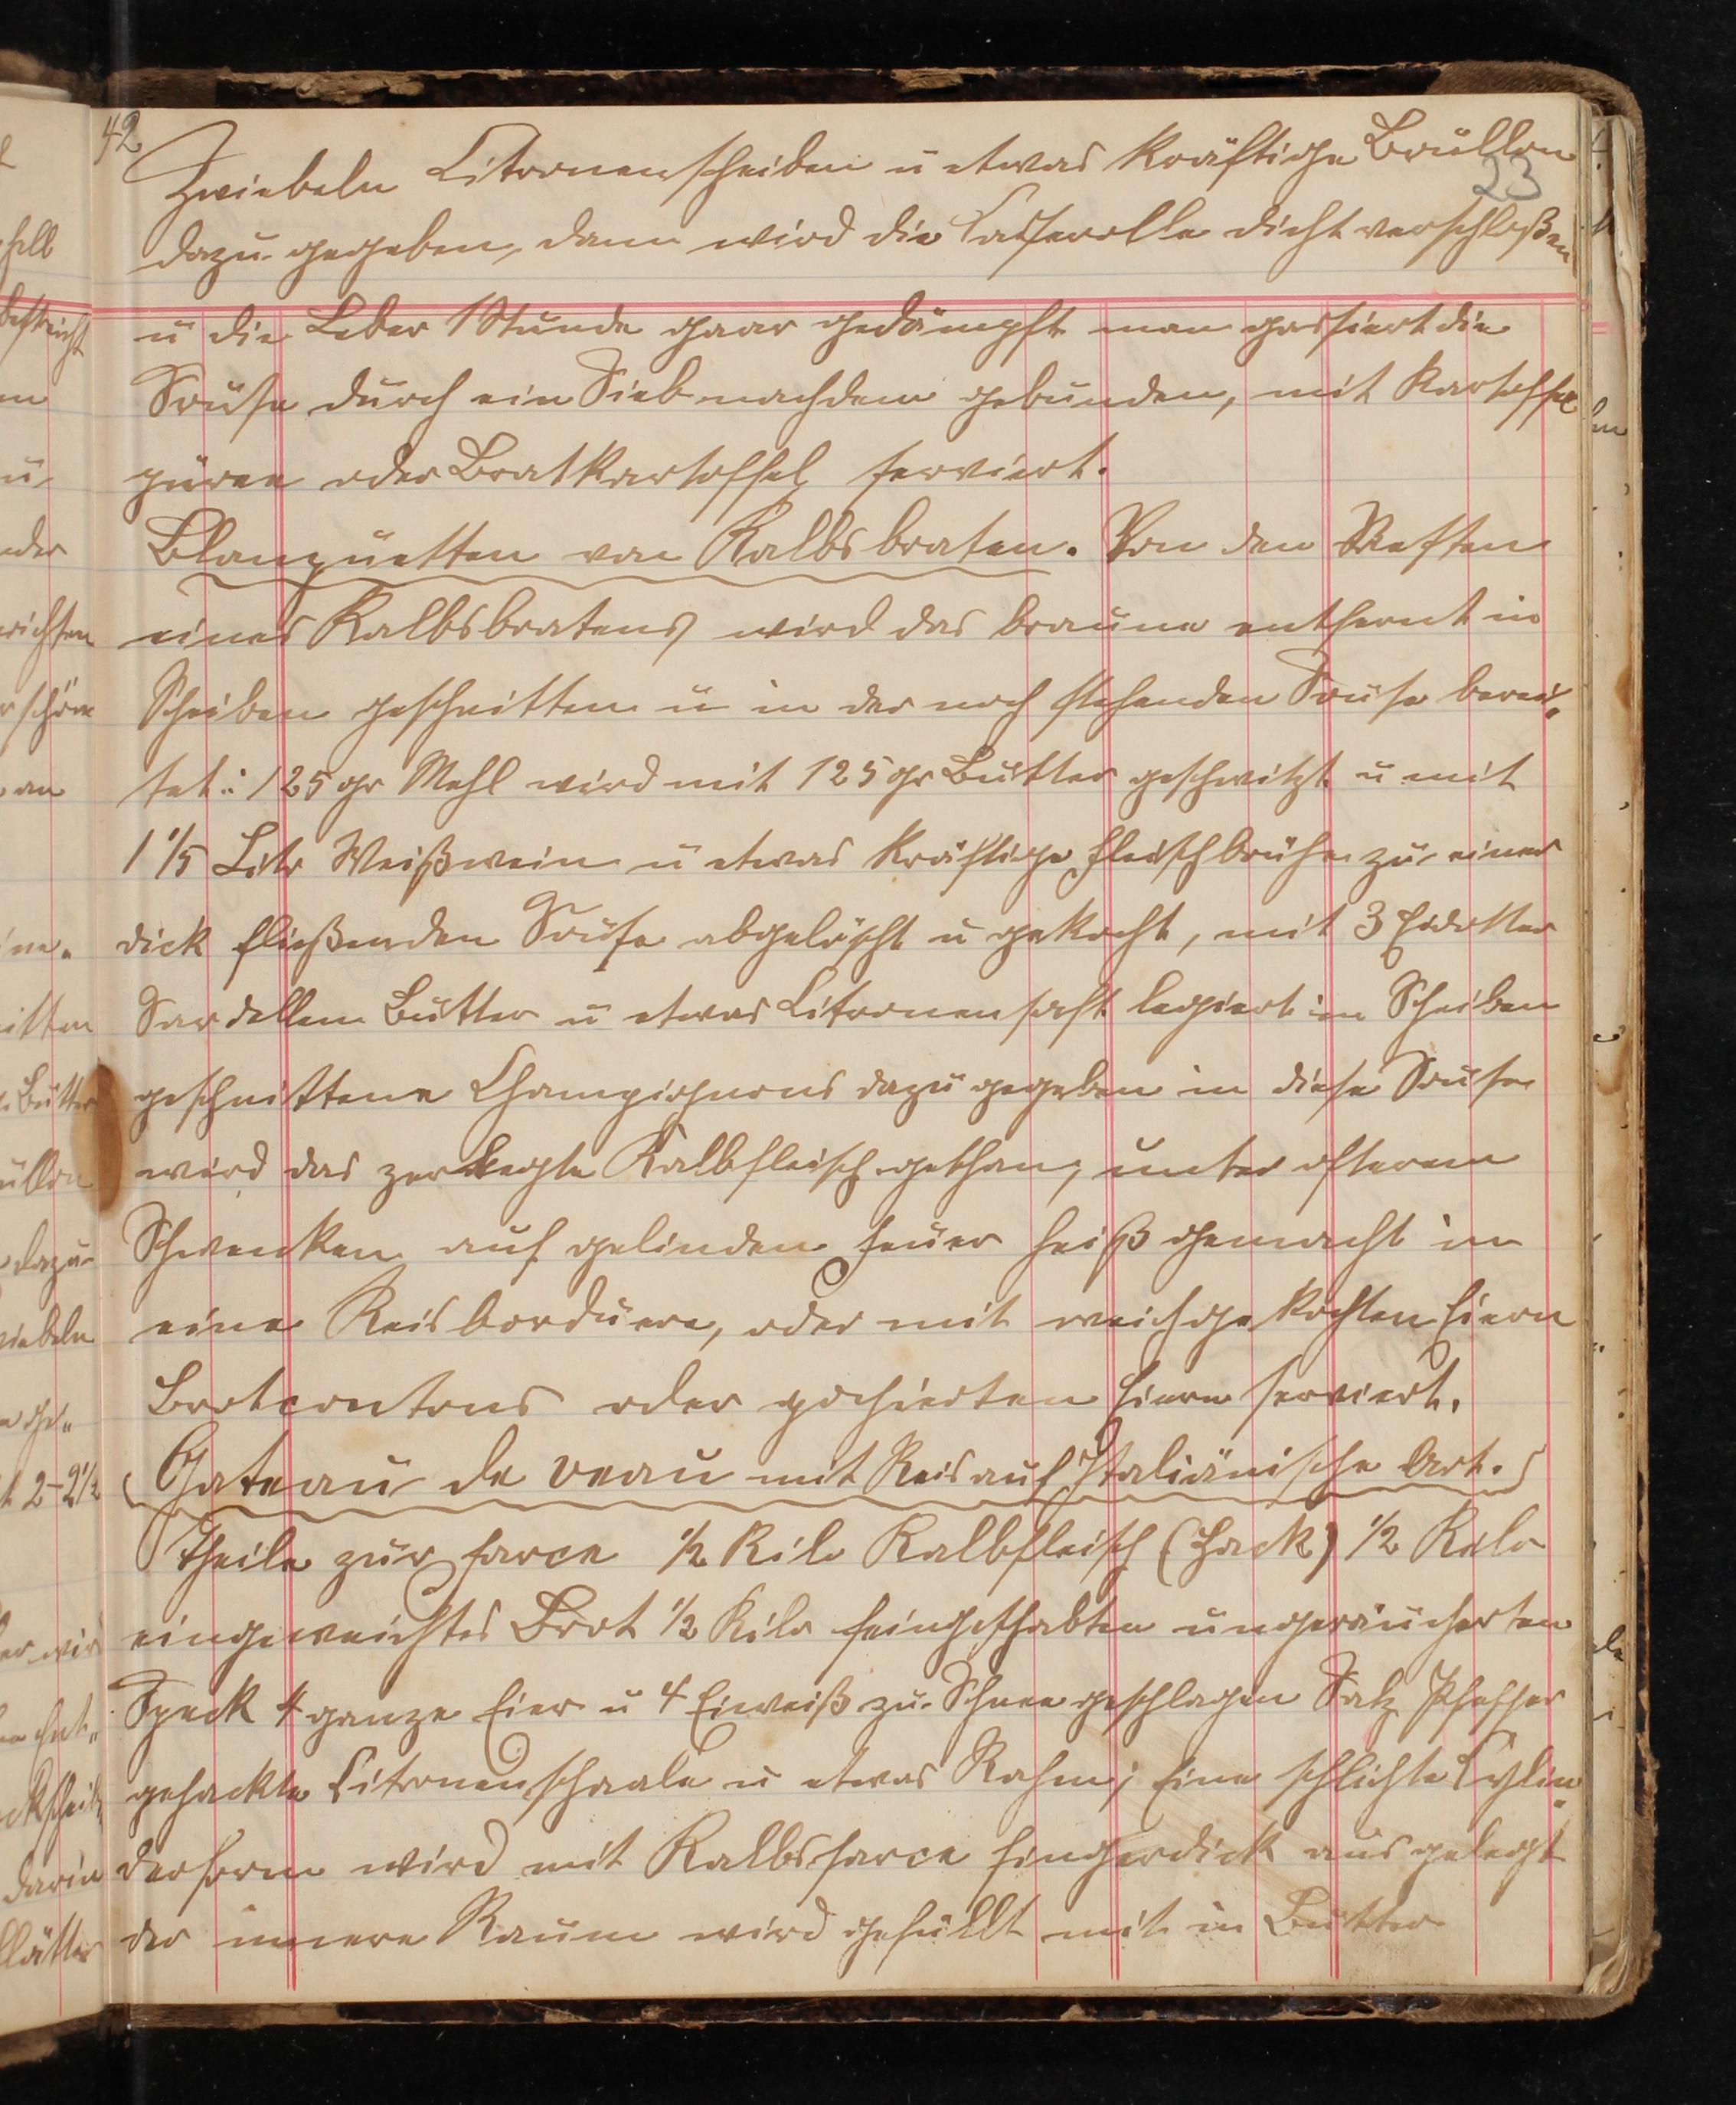 42
Zwiebeln Citronenscheiben u etwas kräftige Boullon
23
dazu gegeben, dann wird die Casserolle dicht verschloßen
u die Leber 1 Stunde gaar gedämpft man passiert die
Souße durch ein Sieb nachdem gebunden, mit Kartoffel
püree oder Bratkartoffel serviert.
Blanquetten von Kalbsbraten. Von den Resten
eines Kalbsbratens wird das braune entfernt in
Scheiben geschnitten u in der noch stehenden Souse berei„
tet: 125 gr Mehl wird mit 125 gr Butter geschwitzt u mit
1 1/5 Litr Weißwein u etwas kräftige Fleischbrühe zu einer
dick fließenden Souse abgelöscht u gekocht, mit 3 Eidotter
Sardellen Butter u etwas Citronensaft legiert in Scheiben
geschnittene Champignons dazu gegeben in diese Souse
wird das zerlegte Kalbfleisch gethan, unter ofterem
Schwenken auf gelinden Feuer heiß gemacht in
eine Reisborduere, oder mit weichgekochten Eiern
Brotcroutons oder pochierten Eiern serviert.
Gateau de veau mit Reis auf Italiänische Art.
Theile zur farce 1/2 Kilo Kalbfleisch (Hack) 1/2 Kilo
eingeweichtes Brot 1/2 Kilo feingeschabten ungeräucherten
Speck 4 ganze Eier u 4 Eiweiß zu Schnee geschlagen Salz Pfeffer
gehackte Citronenschaale u etwas Rahm; Eine schlichte Cylin„
derform wird mit Kalbsfarce fingerdick ausgelegt
der innere Raum wird gefüllt mit in Butter